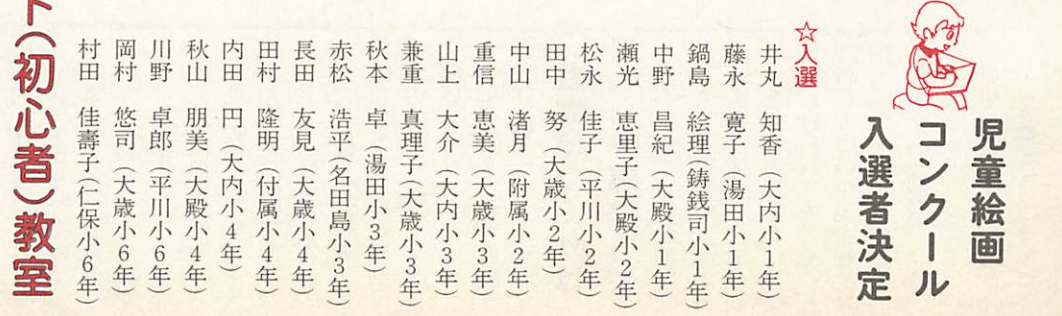 児童絵画
コンクール
入選者決定
☆入選
井丸 知香(大内小1年)
藤永 寛子(湯田小1年)
鍋島 絵理(鋳銭司小1年)
中野 昌紀(大殿小1年)
瀬光 恵里子(大殿小2年)
松永 佳子(平川小2年)
田中 努(大歳小2年)
中山 渚月(附属小2年)
重信 恵美(大歳小3年)
山上 大介(大内小3年)
兼重 真理子(大歳小3年)
秋本 卓(湯田小3年)
赤松 浩平(名田島小3年)
長田 友見(大歳小4年)
田村 隆明(付属小4年)
内田 円(大内小4年)
秋山 朋美(大殿小4年)
川野 卓郎(平川小6年)
岡村 悠司(大歳小6年)
村田 佳壽子(仁保小6年)
(初心者)教室